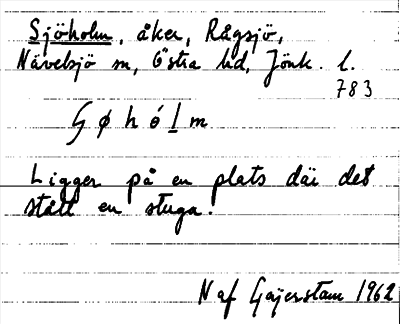 Sjöholm, åker, Rågsjö,
Nävelsjö sn, Östra hd, Jönk. l.
783
ʃ ø h ó l m
Ligger på en plats där det
stått en stuga.
N af Gajerstam 1962